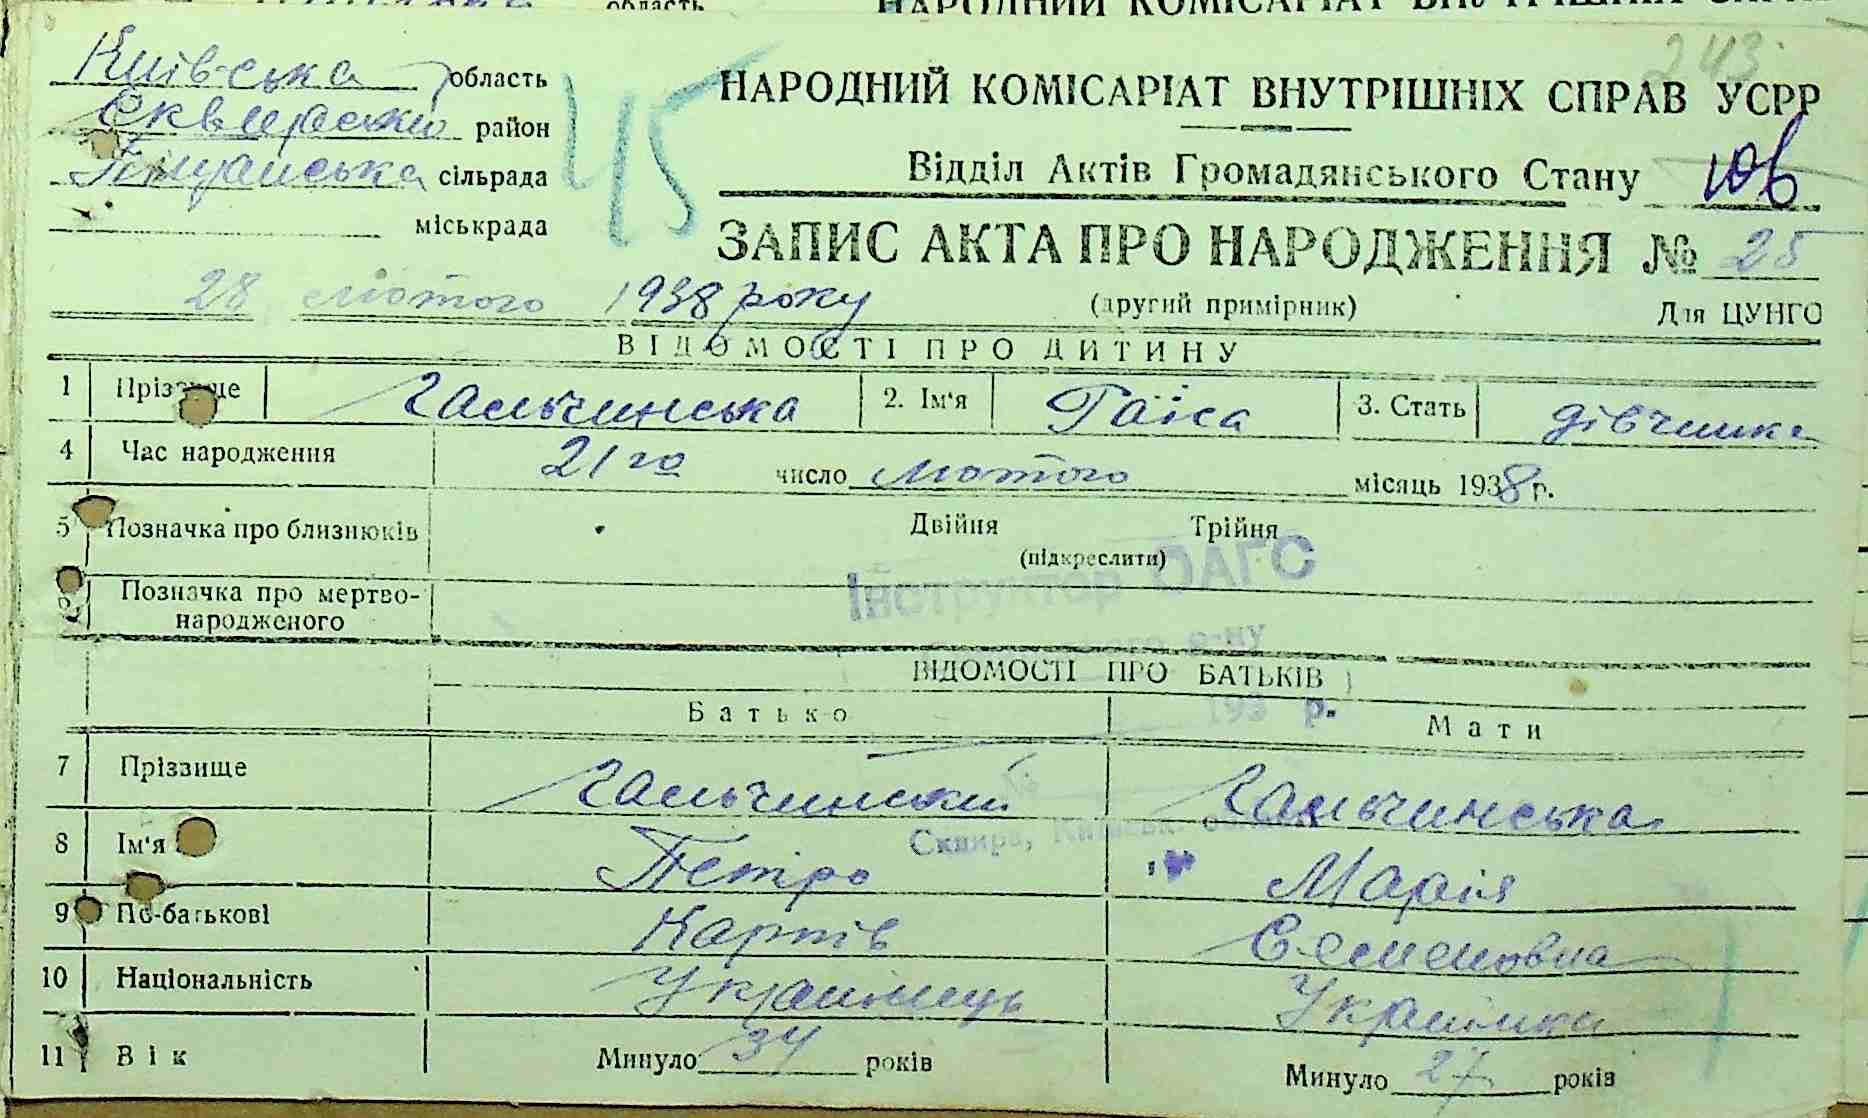 область
НАРОДНИЙ КОМІСАРІАТ ВНУТРІШНІХ СПРАВ
243
Київська область
НАРОДНИЙ КОМІСАРІАТ ВНУТРІШНІХ СПРАВ УСРР
Сквирський район
45
сільрада
Відділ Актів Громадянського Стану
міськрада
ЗАПИС АКТА ПРО НАРОДЖЕННЯ № 25
28 лютого 1938 року
(другий примірник) Для ЦУНГО
ВІДОМОСТІ ПРО ДИТИНУ
1 Прізвище Гальчинська 2. Ім'я Раїса 3. Стать дівчинка
4 Час народження 21го число лютого місяць 1938 г.
5 Позначка про близнюків Двійня Трійня
(підкреслити)
Інструктор ОАГС
Позначка про мертво-
народженого
р-ну
ВІДОМОСТІ ПРО БАТЬКІВ
193 р.
Батько Мати
7 Прізвище Гальчинський Гальчинська
Сквира, Київськ. області
8 Ім'я Петро Марія
9 По-батькові Карпів Семеновна
10 Національність Українець Українка
11 Вік Минуло 34 років Минуло 27 років